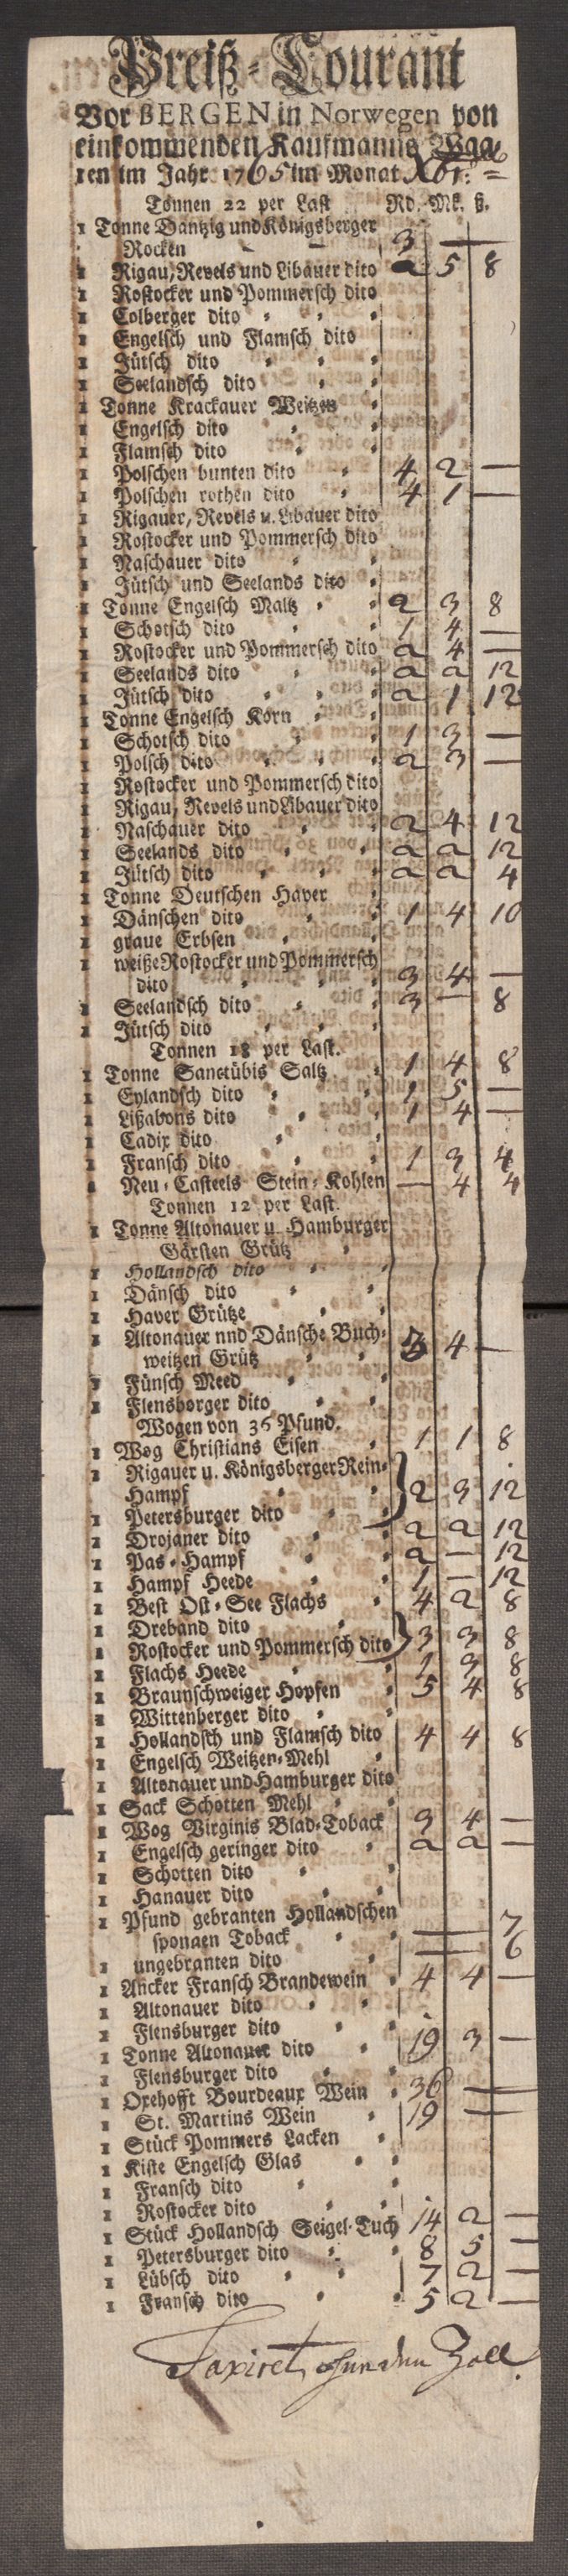 Preiß-Courant
Vor BERGEN in Norwegen von
einkommenden Kaufmanns Waa-
ren im Jahr 1765 im Monat Xbr:
Tonnen 22 per Last Rd. Mk. ß.
1 Tonne Dantzig und Königsberger
Rocken 3 —
1 Rigau, Revels und Libauer dito 2 5 8
1 Rostocker und Pommersch dito
1 Colberger dito
1 Engelsch und Flamsch dito
1 Jütsch dito
1 Seelandsch dito
1 Tonne Krackauer Weitzen
1 Engelsch dito
1 Flamsch dito
1 Polschen bunten dito 4 2 —
1 Polschen rothen dito 4 1 —
1 Rigauer, Revels u. Libauer dito
1 Rostocker und Pommersch dito
1 Naschauer dito
1 Jütsch und Seelands dito
1 Tonne Engelsch Maltz 2 3 8
1 Schotsch dito 1 4 —
1 Rostocker und Pommersch dito 2 4 —
1 Seelands dito 2 2 12
1 Jütsch dito 2 1 12
1 Tonne Engelsch Korn
1 Schotsch dito 1 3 —
1 Polsch dito 2 3 —
1 Rostocker und Pommersch dito
1 Rigau, Revels und Libauer dito
1 Naschauer dito 2 4 12
1 Seelands dito 2 2 12
1 Jütsch dito 2 2 4
1 Tonne Deutschen Haver
1 Dänschen dito 1 4 10
1 graue Erbsen
1 weiße Rostocker und Pommersch
dito 3 4 —
1 Seelandsch dito 3 — 8
1 Jütsch dito
Tonnen 18 per Last.
1 Tonne Sanctübis Saltz 1 4 8
1 Eylandsch dito 1 5 —
1 Lißabons dito 1 4 —
1 Cadix dito
1 Fransch dito 1 3 4
1 Neu-Casteels Stein-Kohlen — 4 4
Tonnen 12 per Last.
1 Tonne Altonauer u. Hamburger
Gärsten Grütz
1 Hollandsch dito
1 Dänsch dito
1 Haver Grütze
1 Altonauer nnd Dänsche Buch-
weitzen Grütz 3 4 —
1 Fünsch Meed
1 Flensborger dito
Wogen von 36 Pfund.
1 Wog Christians Eisen 1 1 8
1 Rigauer u. Königsberger Rein-
Hampf 2 3 12
1 Petersburger dito
1 Drojaner dito 2 2 12
1 Pas-Hampf 2 — 12
1 Hampf Heede 1 — 12
1 Best Ost-See Flachs 4 2 8
1 Dreband dito 3 3 8
1 Rostocker und Pommersch dito
1 Flachs Heede 1 3 8
1 Braunschweiger Hopfen 5 4 8
1 Wittenberger dito
1 Hollandsch und Flamsch dito 4 4 8
1 Engelsch Weitzen-Mehl
1 Altonauer und Hamburger dito
1 Sack Schotten Mehl
1 Wog Virginis Blad-Toback 3 4 —
1 Engelsch geringer dito 2 2 —
1 Schotten dito
1 Hanauer dito
1 Pfund gebranten Hollandschen
sponaen Toback — 7
1 ungebranten dito — 6
1 Ancker Fransch Brandewein 4 4 —
1 Altonauer dito
1 Flensburger dito
1 Tonne Altonauer dito 19 3 —
1 Flensburger dito
1 Oxehofft Bourdeaux Wein 36 —
1 St. Martins Wein 19 —
1 Stück Pommers Lacken
1 Kiste Engelsch Glas
1 Fransch dito
1 Rostocker dito
1 Stück Hollandsch Seigel-Tuch 14 2 —
1 Petersburger dito 8 5 —
1 Lübsch dito 7 2 —
1 Fransch dito 5 2 —
Taxiret Zoll.